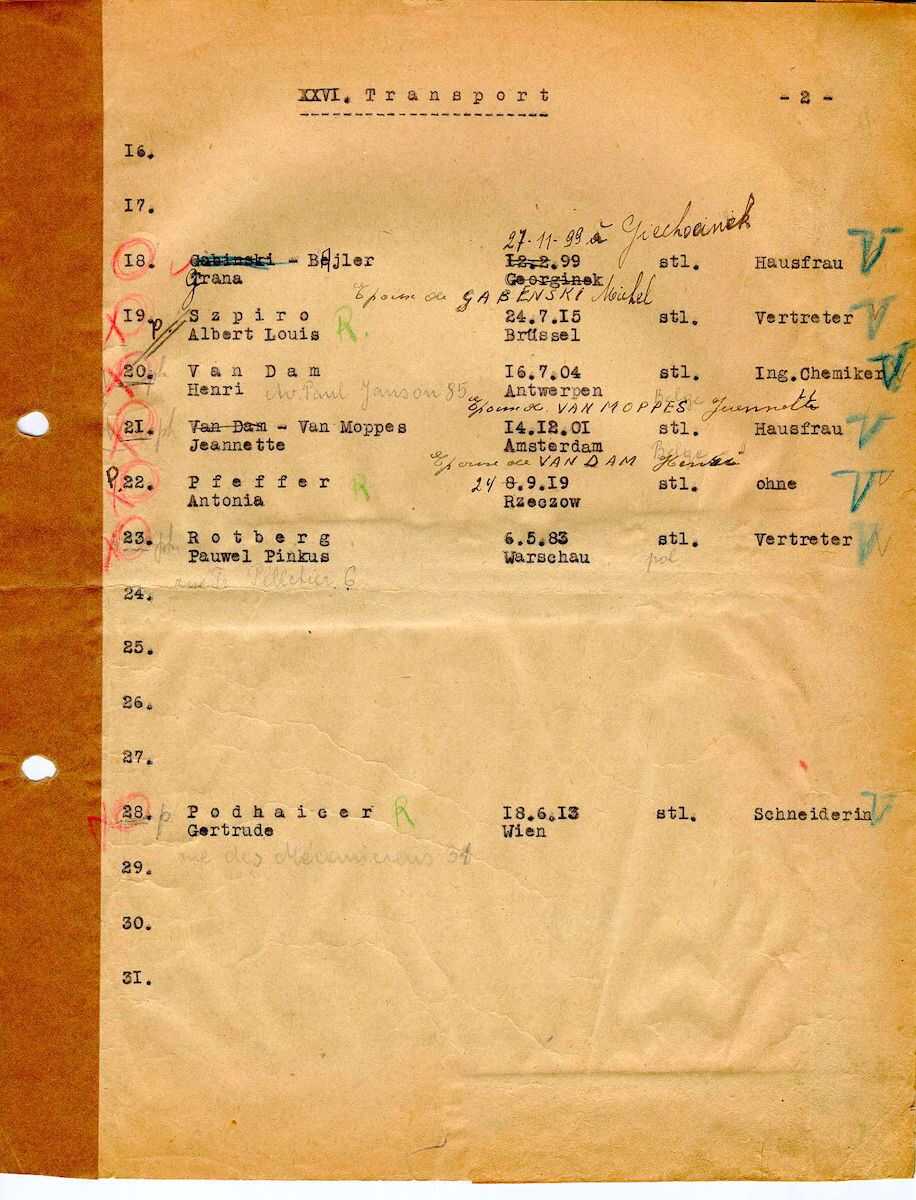 XXVI. Transport - 2 -
16.
17.
27-11-99 à Giechocinek
18. Gabinski - Bajler 12.2.99 stl. Hausfrau
Grana Georginek
Epouse de GABENSKI Michel
19. p. Szpiro 24.7.15 stl. Vertreter
Albert Louis R. Brüssel
20. ph Van Dam 16.7.04 stl. Ing.Chemiker
Henri Av. Paul Janson 85 Antwerpen Belge
Epoux de VAN MOPPES Jeannette
21. ph Van Dam - Van Moppes 14.12.01 stl. Hausfrau
Jeannette Amsterdam Belge
Epouse de VAN DAM Henri
P. 22. Pfeffer R 24 8.9.19 stl. ohne
Antonia Rzeczow
23. Rotberg 6.5.83 stl. Vertreter
Pauwel Pinkus Warschau pol
Pelletier 6
24.
25.
26.
27.
28. p. Podhaicer R 18.6.13 stl. Schneiderin
Gertrude Wien
rue des Mécaniciens
29.
30.
31.